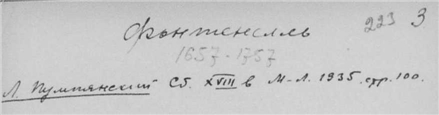 Фонтенелль 223 3
1657-1757
Л. Пумпянский Сб. XVIII в М-Л. 1935. стр. 100.